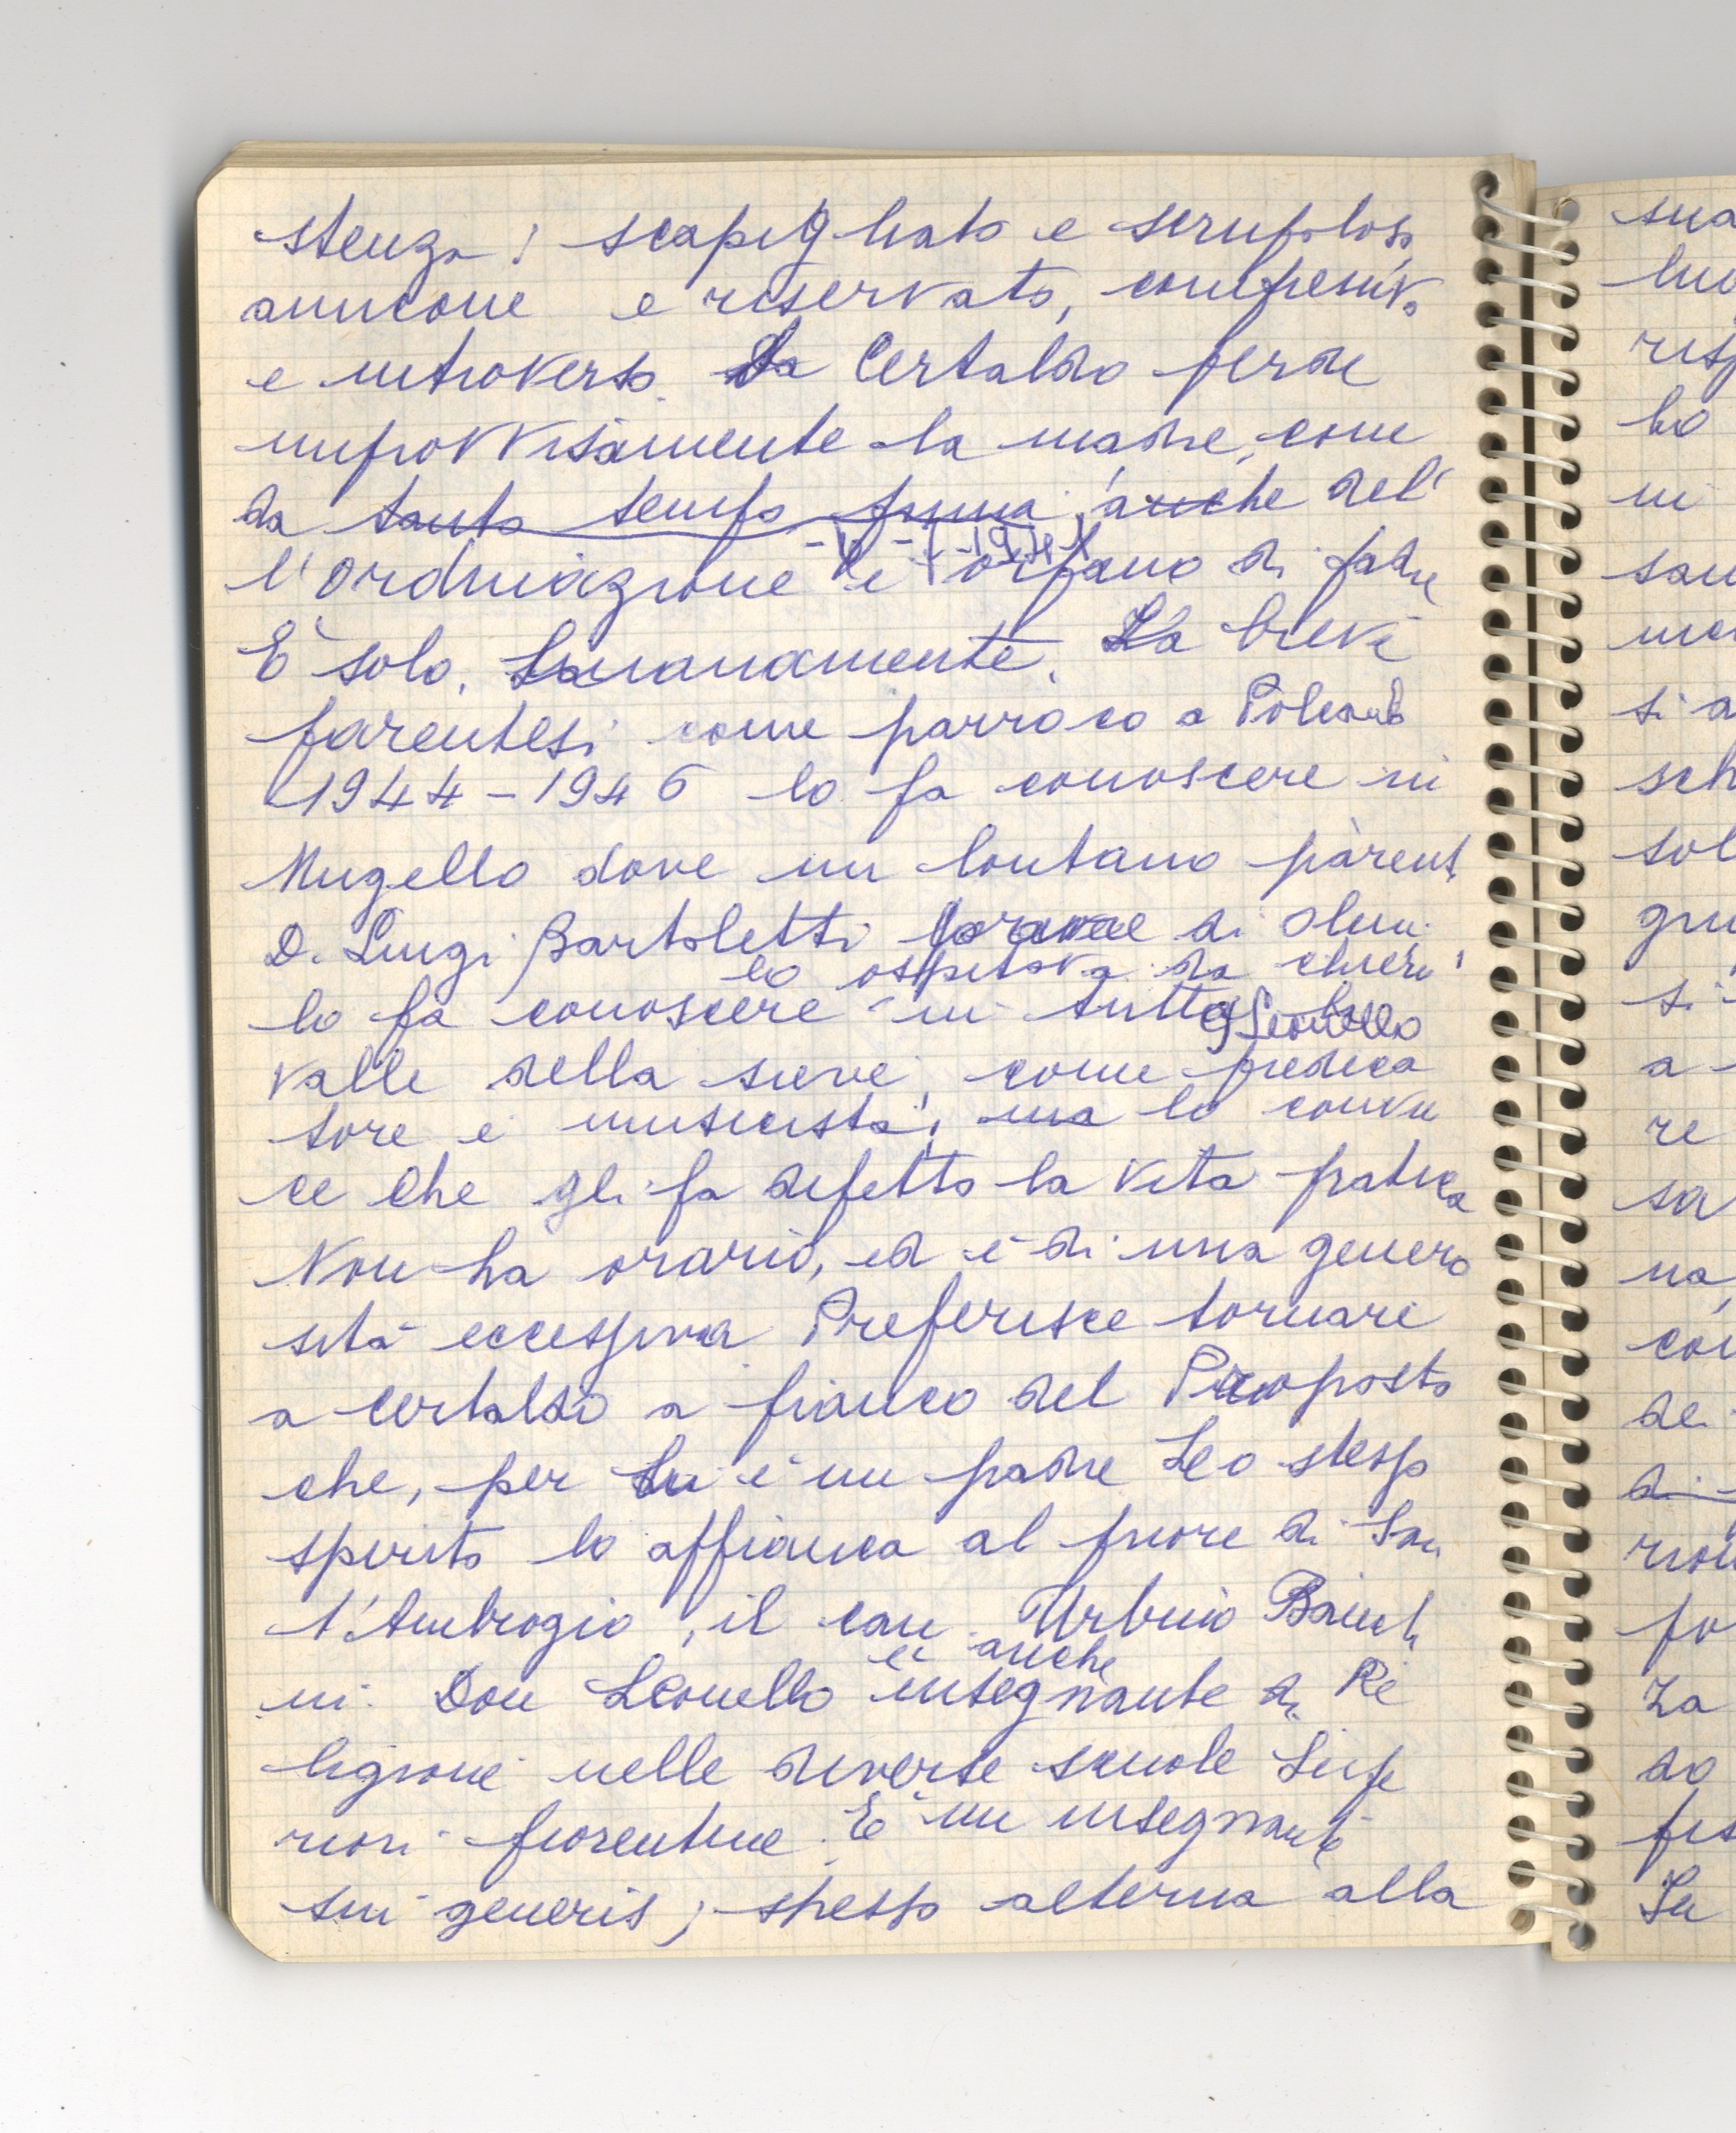 stenza; scapigliato e scrupoloso
amicone e riservato, compressivo
e introverso. A Certaldo perde
improvvisamente la madre, come
da tanto tempo prima anche del
l'Ordinazione è orfano di padre
È solo, umanamente. La breve
parentesi come parroco a Polcanto
1944-1946 lo fa conoscere in
Mugello dove un lontano parente
D. Luigi Bartoletti di Olmi
lo ospitava da chieri
lo fa conoscere in tutta la
Leonello
valle della sieve, come predica
tore e musicista, ma lo convin
ce che gli fa difetto la vita pratica
Non ha orario, ed è di una genero
sità eccessiva Preferisce tornare
a Certaldo a fianco del Proposto
che, per lui è un padre Lo stesso
spirito lo affianca al priore di San
t'Ambrogio, il can. Urbino Bainchi
è anche
ni. Don Leonello insegnante di Re
ligione nelle diverse scuole Supe
riori fiorentine. È un insegnante
sui generis; spesso alterna alla
sua
ri
a
re
sa
na,
di
po
za
do